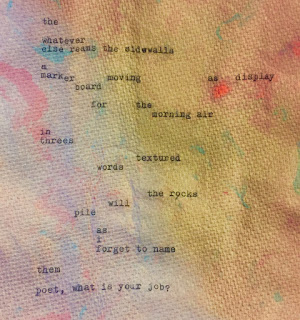 the
whatever
else reams the sidewalls
a
marker moving as display
board
for the
morning air
in
threes
textured
words
the rocks
will
pile
as
I
forget to name
them
poet, what is your job?